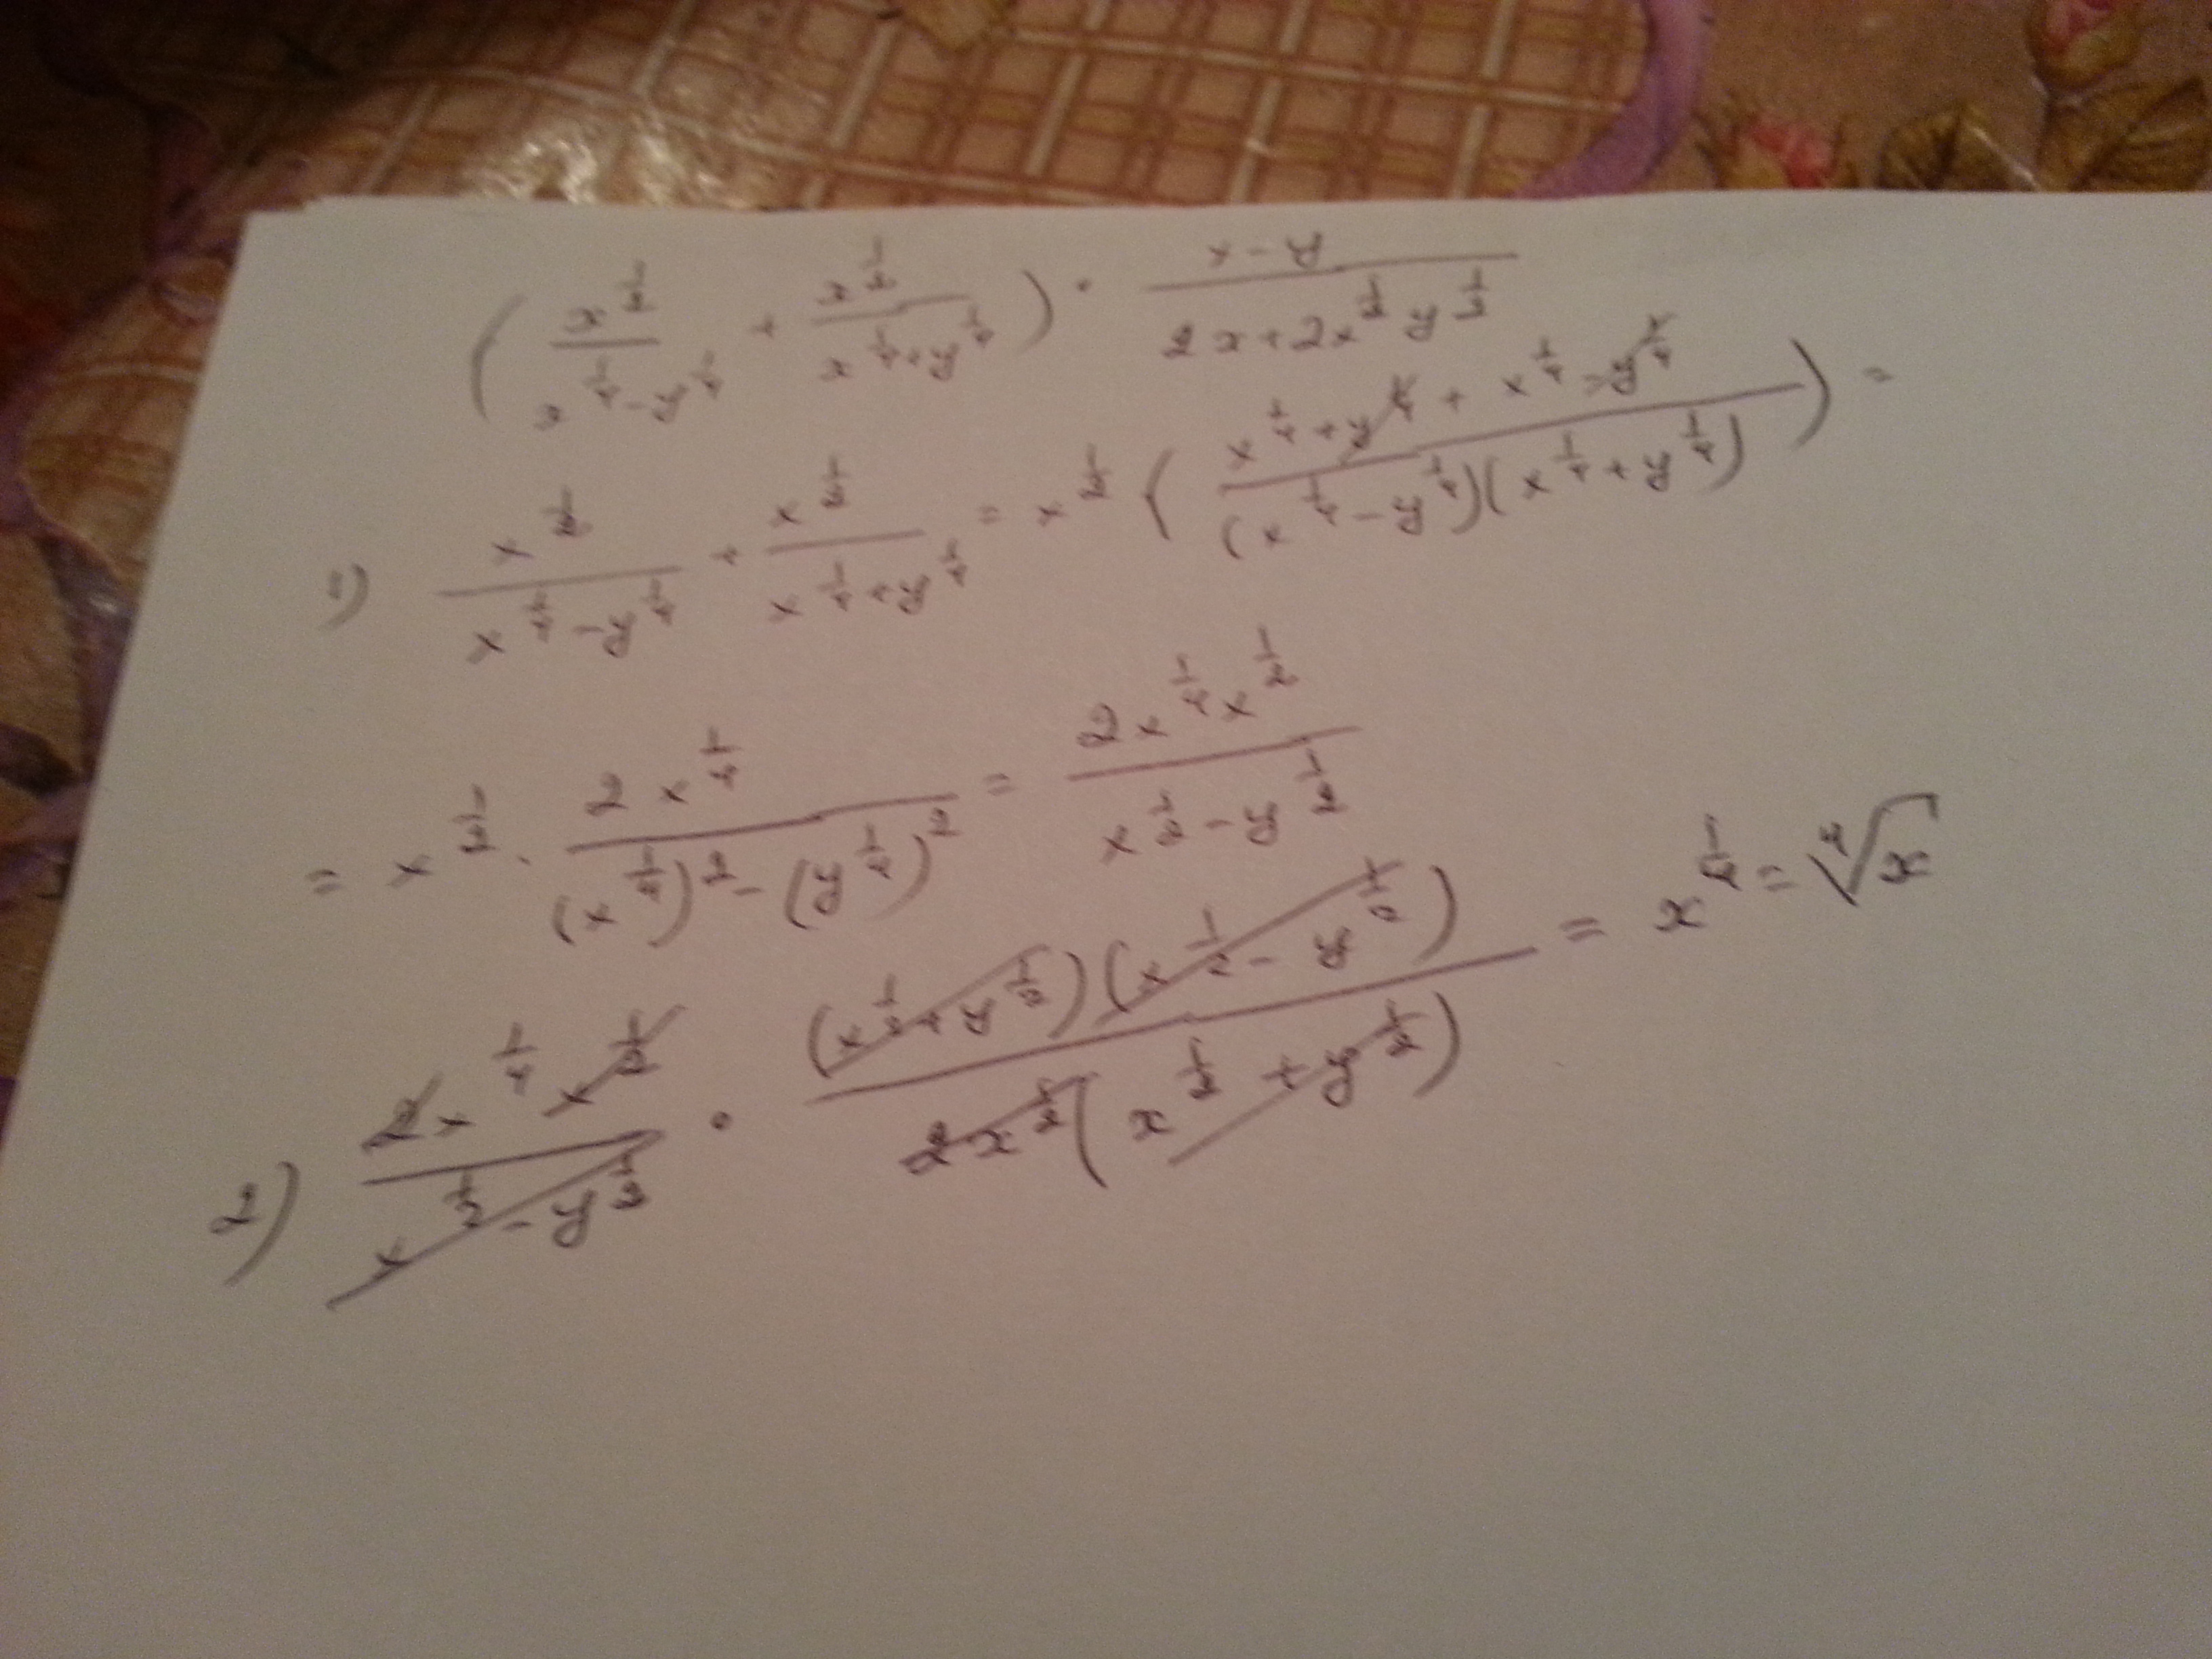 ( x^{1/2} / (x^{1/4} - y^{1/4}) + x^{1/2} / (x^{1/4} + y^{1/4}) ) · (x - y) / (2x + 2x^{1/2} y^{1/2})
1) x^{1/2} / (x^{1/4} - y^{1/4}) + x^{1/2} / (x^{1/4} + y^{1/4}) = x^{1/2} ( (x^{1/4} + y^{1/4} + x^{1/4} - y^{1/4}) / ((x^{1/4} - y^{1/4})(x^{1/4} + y^{1/4})) ) =
= x^{1/2} · 2x^{1/4} / ((x^{1/4})^2 - (y^{1/4})^2) = 2x^{1/4} x^{1/2} / (x^{1/2} - y^{1/2})
2) 2x^{1/4} x^{1/2} / (x^{1/2} - y^{1/2}) · (x^{1/2} + y^{1/2})(x^{1/2} - y^{1/2}) / (2x^{1/2}(x^{1/2} + y^{1/2})) = x^{1/4} = ⁴√x